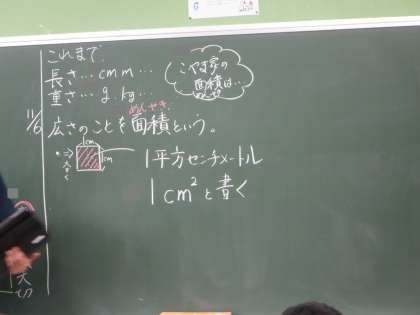 これまで
長さ…cm m…
重さ…g.kg…
こやま家の
面積は…
めんせき
11/6
広さのことを面積という。
1cm
1cm
1平方センチメートル
1cm²と書く